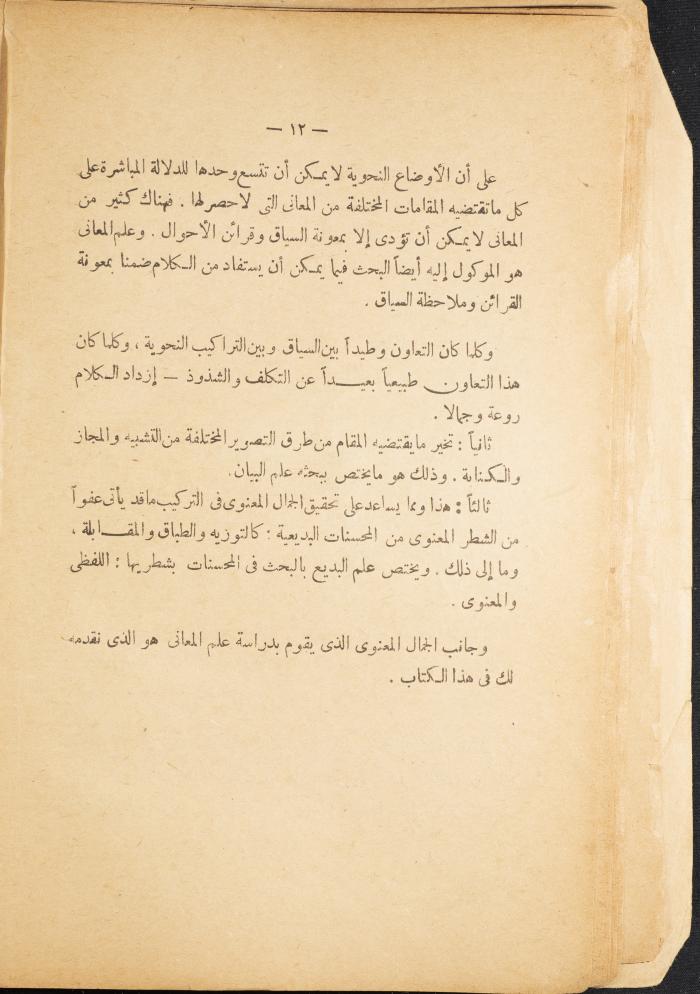 — ١٢ —
على أن الأوضاع النحوية لا يمكن أن تتسع وحدها للدلالة المباشرة على
كل ما تقتضيه المقامات المختلفة من المعانى التى لا حصر لها . فهناك كثير من
المعانى لا يمكن أن تؤدى إلا بمعونة السياق وقرائن الأحوال . وعلم المعانى
هو الموكول إليه أيضاً البحث فيما يمكن أن يستفاد من الكلام ضمنا بمعونة
القرائن وملاحظة السياق .
وكلما كان التعاون وطيداً بين السياق وبين التراكيب النحوية ، وكلما كان
هذا التعاون طبيعياً بعيداً عن التكلف والشذوذ — إزداد الكلام
روعة وجمالا .
ثانياً : تخير ما يقتضيه المقام من طرق التصوير المختلفة من التشبيه والمجاز
والكناية . وذلك هو ما يختص ببحثه علم البيان.
ثالثاً : هذا ومما يساعد على تحقيق الجمال المعنوى فى التركيب ما قد يأتى عفواً
من الشطر المعنوى من المحسنات البديعية : كالتوزيه والطباق والمقابلة ،
وما إلى ذلك . ويختص علم البديع بالبحث فى المحسنات بشطريها : اللفظى
والمعنوى .
وجانب الجمال المعنوى الذى يقوم بدراسة علم المعانى هو الذى نقدمه
لك فى هذا الكتاب .